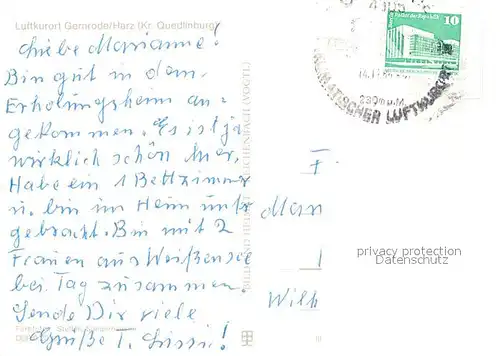 Luftkurort Gernrode/Harz (Kr. Quedlinburg)
Liebe Marianne!
Bin gut in dem
Erholungsheim an-
gekommen. Es ist ja
wirklich schön hier,
Habe ein 1 Bettzimmer
u. bin im Heim unter
gebracht. Bin mit 2
Frauen aus Weißensee
bei Tag zusammen.
Sende Dir viele
Grüße T. Lissi!
10
KLIMATISCHER LUFTKURORT
230m ü.M.
F
Mari
Wilh
privacy protection
Datenschutz